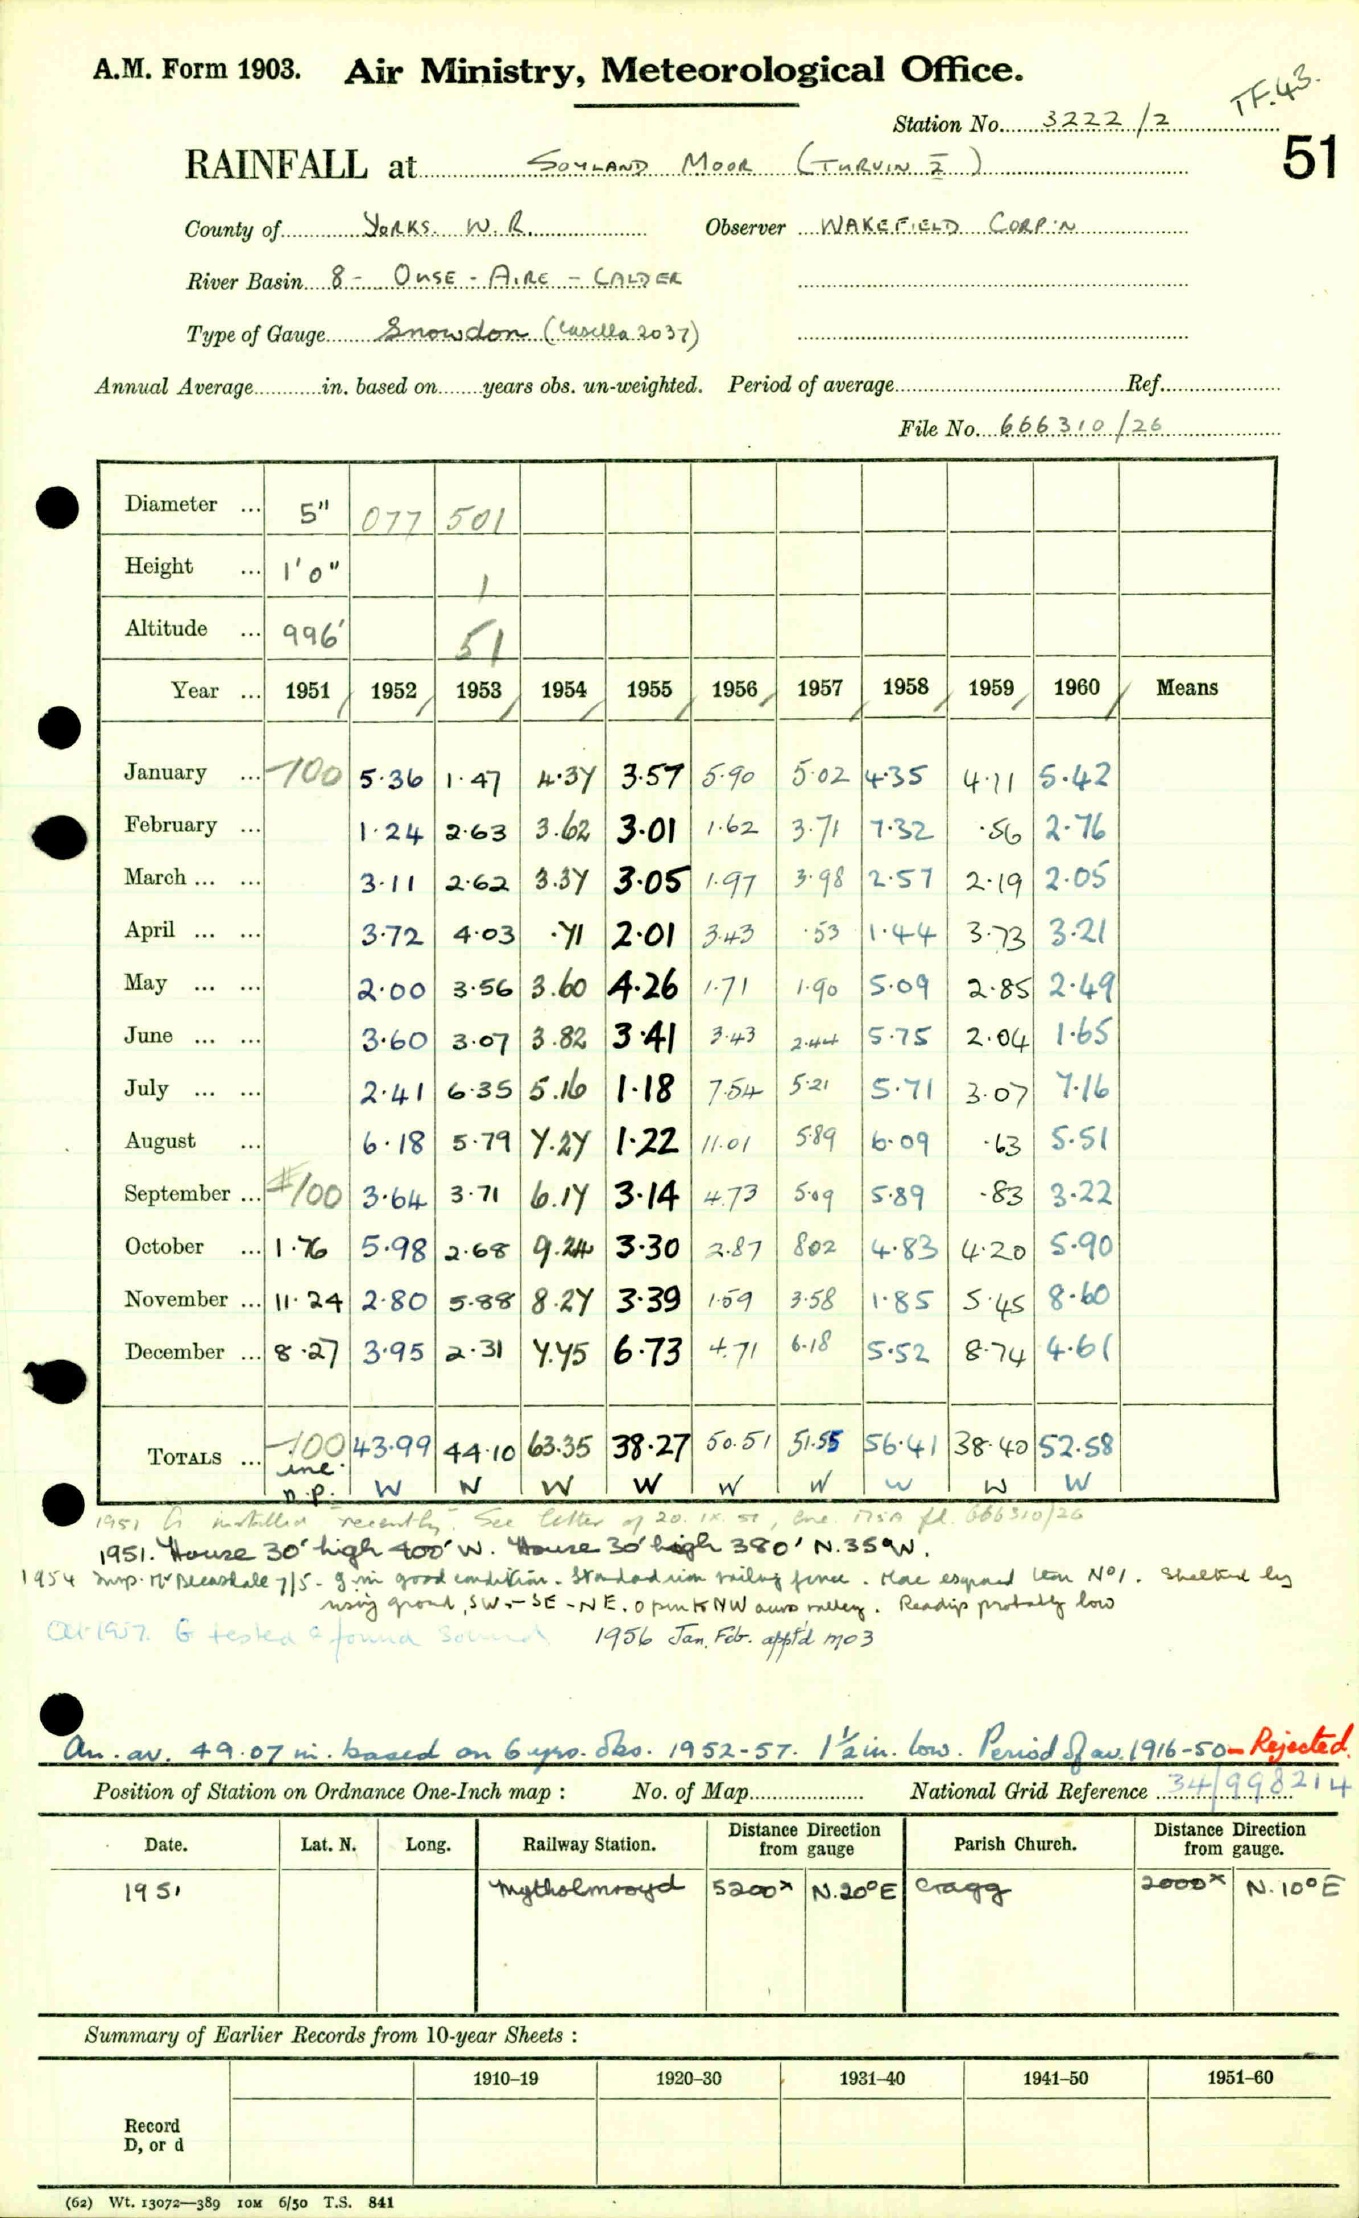 A.M. Form 1903. Air Ministry, Meteorological Office.
TF.43.
Station No. 3222/2
51
RAINFALL at SOYLAND MOOR (TURVIN 2)
County of YORKS. W.R. Observer WAKEFIELD CORP'N
River Basin 8 - OUSE - AIRE - CALDER
Type of Gauge Snowdon (Casella 2037)
Annual Average in. based on years obs. un-weighted. Period of average Ref.
File No. 666310/26
Diameter ... 5" 077 501
Height ... 1'0" 1
Altitude ... 996' 51
Year ... 1951 1952 1953 1954 1955 1956 1957 1958 1959 1960 Means
January ... -100 5.36 1.47 4.37 3.57 5.90 5.02 4.35 4.11 5.42
February ... 1.24 2.63 3.62 3.01 1.62 3.71 7.32 .56 2.76
March ... ... 3.11 2.62 3.37 3.05 1.97 3.98 2.57 2.19 2.05
April ... ... 3.72 4.03 .71 2.01 3.43 .53 1.44 3.73 3.21
May ... ... 2.00 3.56 3.60 4.26 1.71 1.90 5.09 2.85 2.49
June ... ... 3.60 3.07 3.82 3.41 3.43 2.44 5.75 2.04 1.65
July ... ... 2.41 6.35 5.16 1.18 7.54 5.21 5.71 3.07 7.16
August ... 6.18 5.79 7.27 1.22 11.01 5.89 6.09 .63 5.51
September ... 100 3.64 3.71 6.17 3.14 4.73 5.09 5.89 .83 3.22
October ... 1.76 5.98 2.68 9.24 3.30 2.87 802 4.83 4.20 5.90
November ... 11.24 2.80 5.88 8.27 3.39 1.59 3.58 1.85 5.45 8.60
December ... 8.27 3.95 2.31 7.75 6.73 4.71 6.18 5.52 8.74 4.61
TOTALS ... -100 43.99 44.10 63.35 38.27 50.51 51.55 56.41 38.40 52.58
inc. n.p. W W W W W W W W W
1951 G installed "recently". See letter of 20.IX.51, fl. 666310/26
1951. House 30' high 400' W. House 30' high 380' N.35°W.
1954 Insp. Mr Bleasdale 7/5 - g in good condition. Standard iron railing fence. More exposed than No 1. Sheltered by
rising ground, SW - SE - NE. open to NW across valley. Readings probably low
Oct 1957. G tested & found sound 1956 Jan, Feb. appt'd MO3
An. av. 49.07 in. based on 6 yrs. obs. 1952-57. 1½ in. low. Period of av. 1916-50 - Rejected.
Position of Station on Ordnance One-Inch map : No. of Map National Grid Reference 34/998214
Date. Lat. N. Long. Railway Station. Distance from Direction gauge Parish Church. Distance from Direction gauge.
1951 Mytholmroyd 5200ˣ N.20°E Cragg 2000ˣ N.10°E
Summary of Earlier Records from 10-year Sheets :
1910–19 1920–30 1931–40 1941–50 1951–60
Record
D, or d
(62) Wt. 13072—389 10M 6/50 T.S. 841